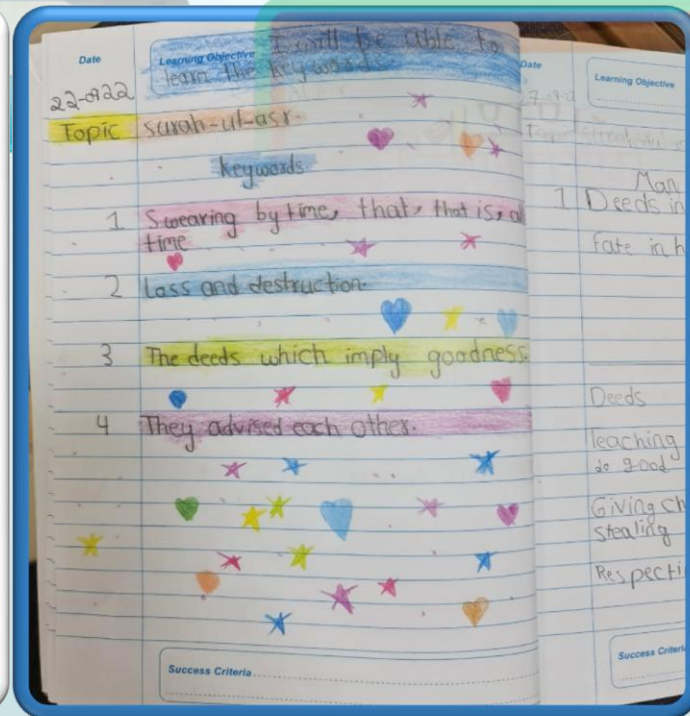 Date
Learning Objective I will be able to
learn the keywords.
22-09-22
Topic surah-ul-asr.
Keywords
1 Swearing by time, that, that is, all
time
2 Loss and destruction.
3 The deeds which imply goodness.
4 They advised each other.
Success Criteria
Date
Learning Objective
Man
1 Deeds in
fate in h
Deeds
Teaching
do good
Giving ch
stealing
Respecti
Success Criteri